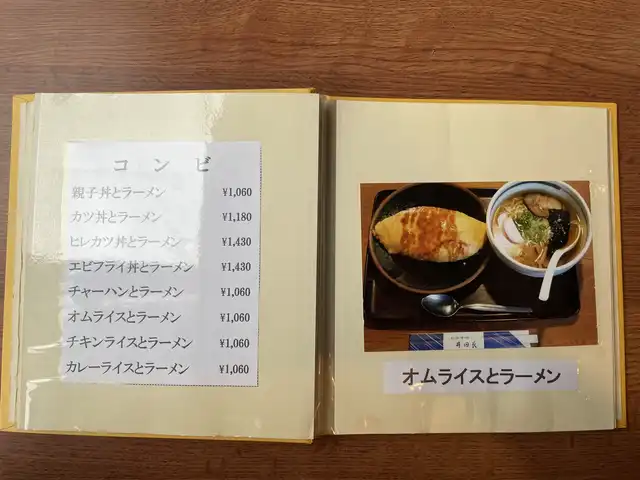 コンビ
親子丼とラーメン ¥1,060
カツ丼とラーメン ¥1,180
ヒレカツ丼とラーメン ¥1,430
エビフライ丼とラーメン ¥1,430
チャーハンとラーメン ¥1,060
オムライスとラーメン ¥1,060
チキンライスとラーメン ¥1,060
カレーライスとラーメン ¥1,060
オムライスとラーメン